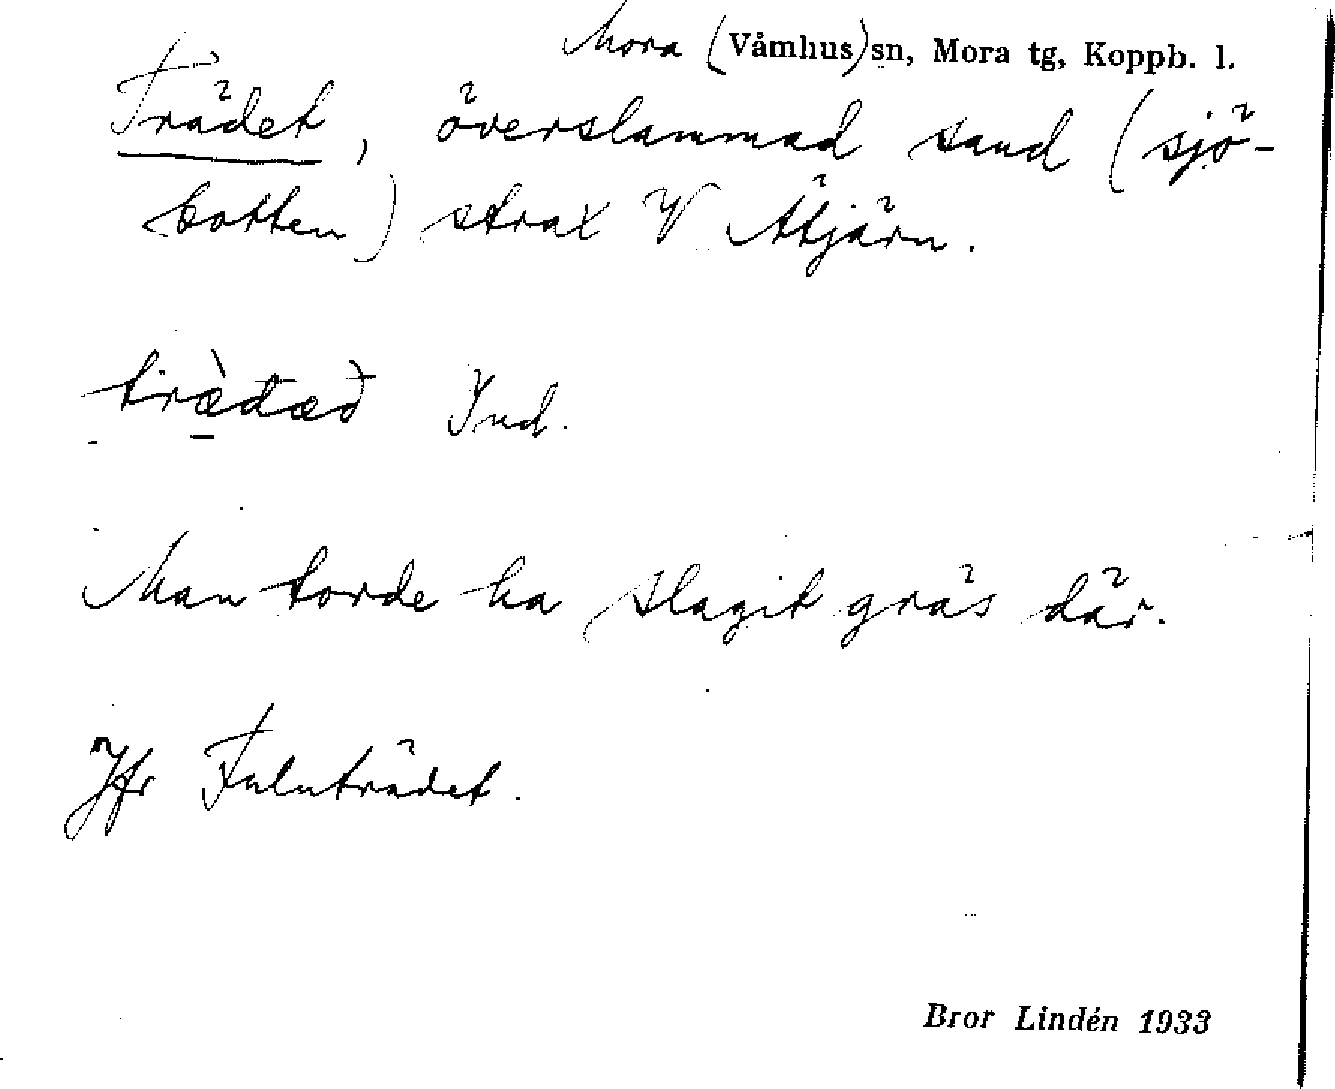 Mora (Våmhus)sn, Mora tg, Koppb. l.
Trädet, överslammad sand (sjö-
botten) strax V Åtjärn.
trä̀dæð Ind.
Man torde ha slagit gräs där.
Jfr Fuluträdet.
Bror Lindén 1933